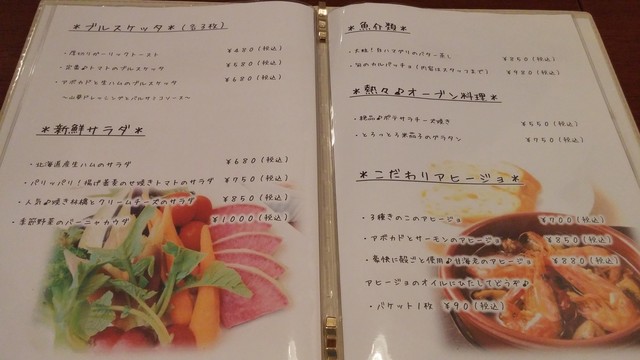 *ブルスケッタ*(各3枚)
・厚切りガーリックトースト ¥480(税込)
・定番♪トマトのブルスケッタ ¥580(税込)
・アボカドと生ハムのブルスケッタ ¥680(税込)
*新鮮サラダ*
・北海道産生ハムのサラダ ¥680(税込)
・パリッパリ!揚げ蕎麦のせ焼きトマトのサラダ ¥750(税込)
・人気♪焼き林檎とクリームチーズのサラダ ¥850(税込)
・季節野菜のバーニャカウダ ¥1000(税込)
*魚介類*
・大粒!白ハマグリのバター蒸し ¥850(税込)
のカルパッチョ(内容はスタッフまで) ¥980(税込)
*熱々♪オーブン料理*
・絶品♪ポテサラチーズ焼き ¥550(税込)
・とろっとろ米茄子のグラタン ¥750(税込)
*こだわりアヒージョ*
・3種きのこのアヒージョ ¥700(税込)
・アボカドとサーモンのアヒージョ ¥850(税込)
・豪快に殻ごと使用♪甘海老のアヒージョ ¥880(税込)
アヒージョのオイルにひたしてどうぞ♪
・バケット1枚 ¥90(税込)